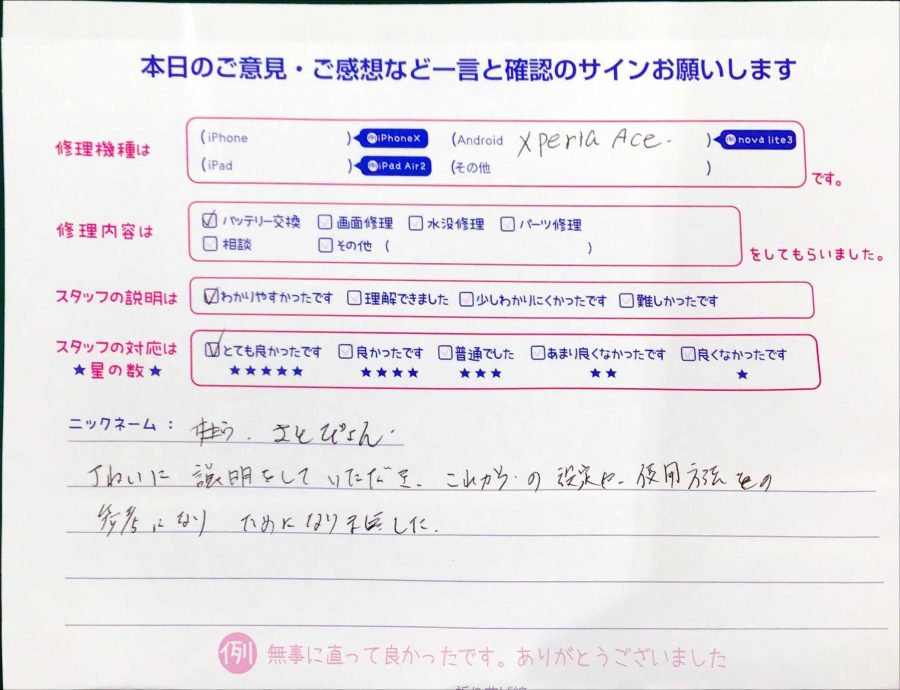 本日のご意見・ご感想など一言と確認のサインお願いします
修理機種は
(iPhone ) iPhoneX (Android Xperia Ace. ) nova lite3
(iPad ) iPad Air2 (その他 ) です。
修理内容は
バッテリー交換 画面修理 水没修理 パーツ修理
相談 その他 ( ) をしてもらいました。
スタッフの説明は わかりやすかったです 理解できました 少しわかりにくかったです 難しかったです
スタッフの対応は とても良かったです 良かったです 普通でした あまり良くなかったです 良くなかったです
★星の数★ ★★★★★ ★★★★ ★★★ ★★ ★
ニックネーム: さとぴょん.
てねいに 説明をして いただき、これから の 設定や、使用方法 の
参考になり ためになりました.
例 無事に直って良かったです。ありがとうございました